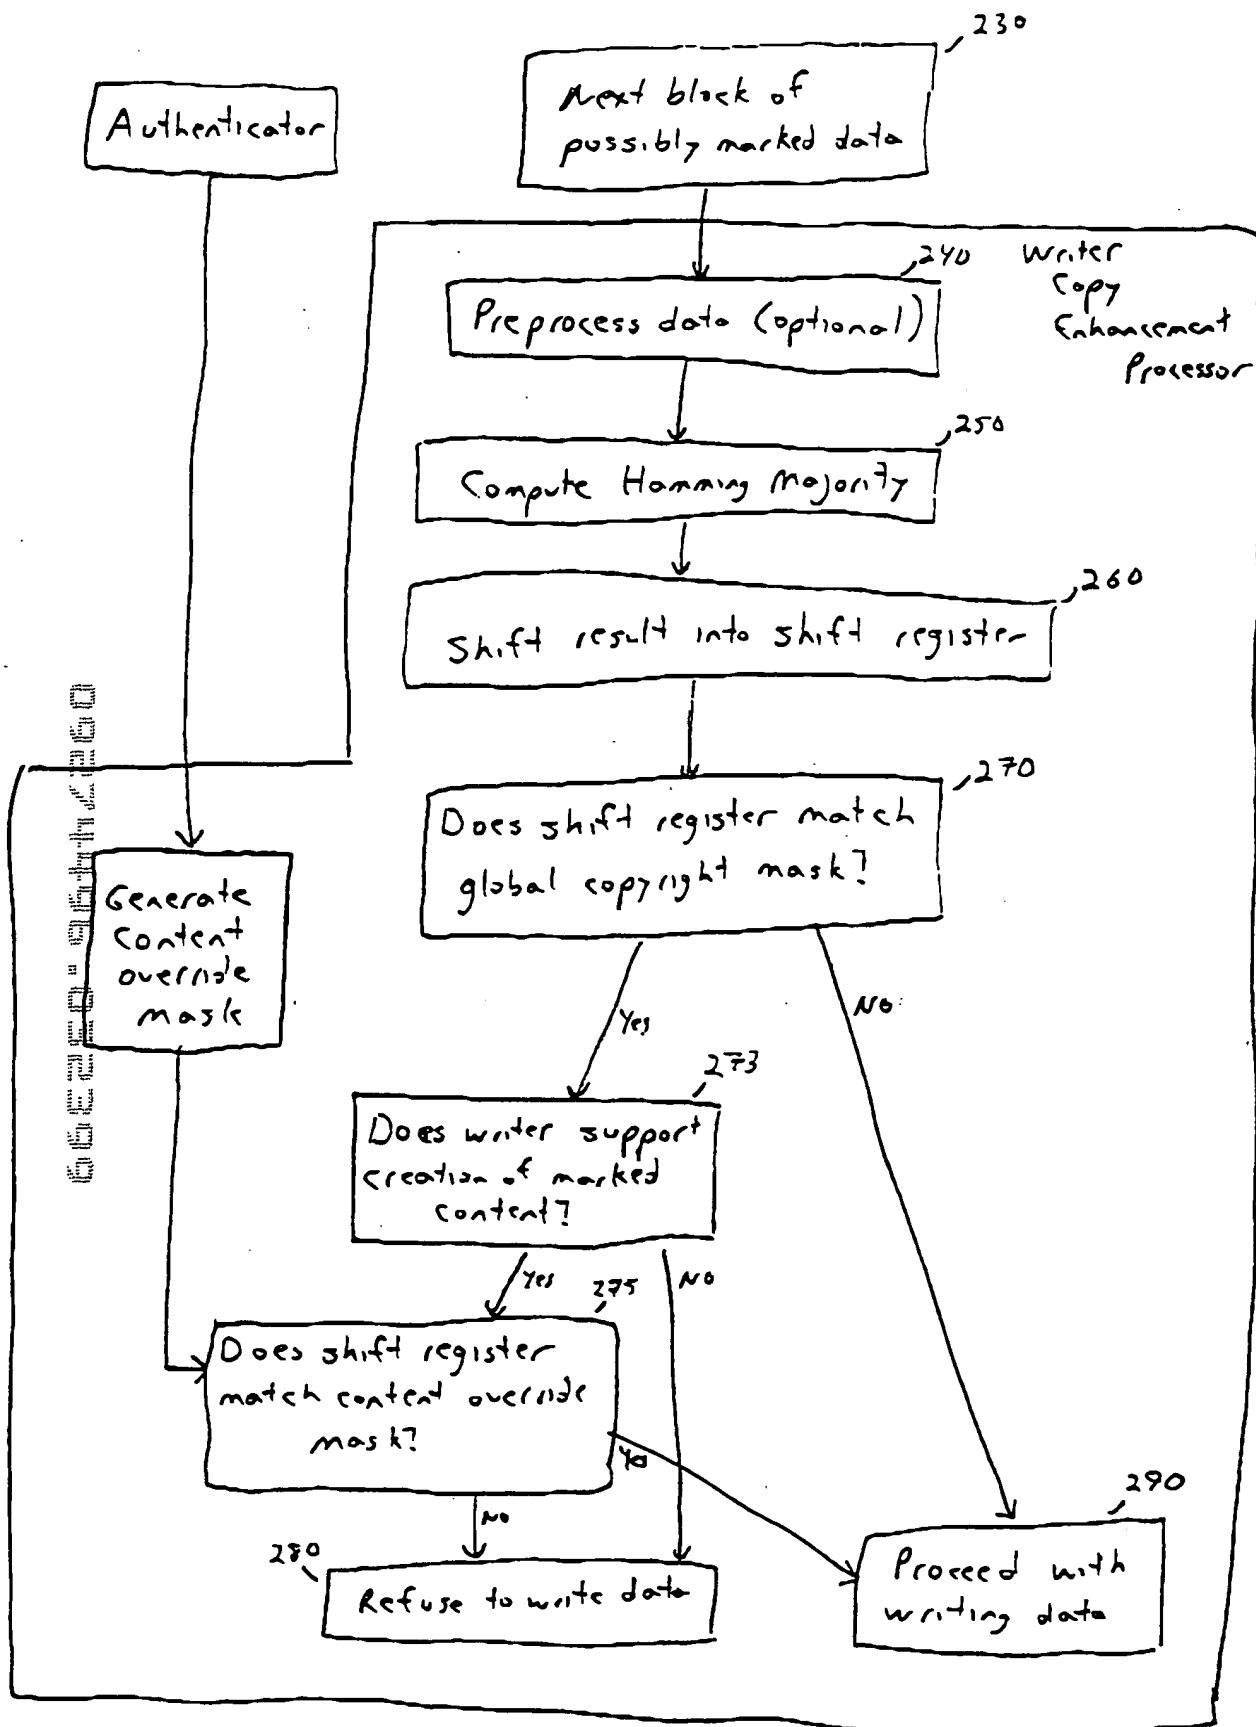 230
Next block of
possibly marked data
Authenticator
240
Writer
Copy
Enhancement
Processor
Preprocess data (optional)
250
Compute Hamming Majority
260
Shift result into shift register
270
Does shift register match
global copyright mask?
Generate
Content
override
mask
Yes
No
273
Does writer support
creation of marked
content?
Yes
No
275
Does shift register
match content override
mask?
Yes
No
280
Refuse to write data
290
Proceed with
writing data